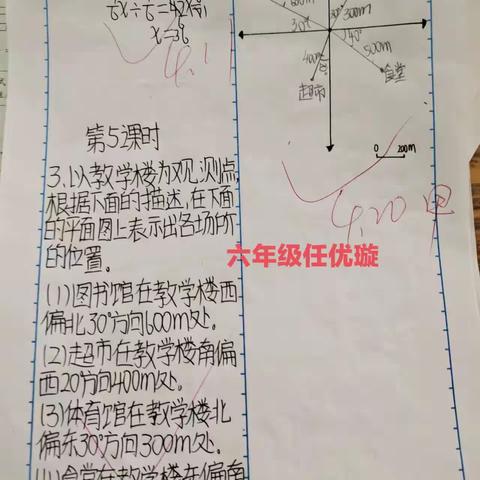 x=36
4.1
第5课时
3.以教学楼为观测点,
根据下面的描述,在下面
的平面图上表示出各场所
的位置。
(1)图书馆在教学楼西
偏北30°方向600m处。
(2)超市在教学楼南偏
西20°方向400m处。
(3)体育馆在教学楼北
偏东30°方向300m处。
(4)食堂在教学楼东偏南
600m
30°
30°
300m
40°
500m
食堂
400m
超市
0 200m
4.20
六年级任优璇